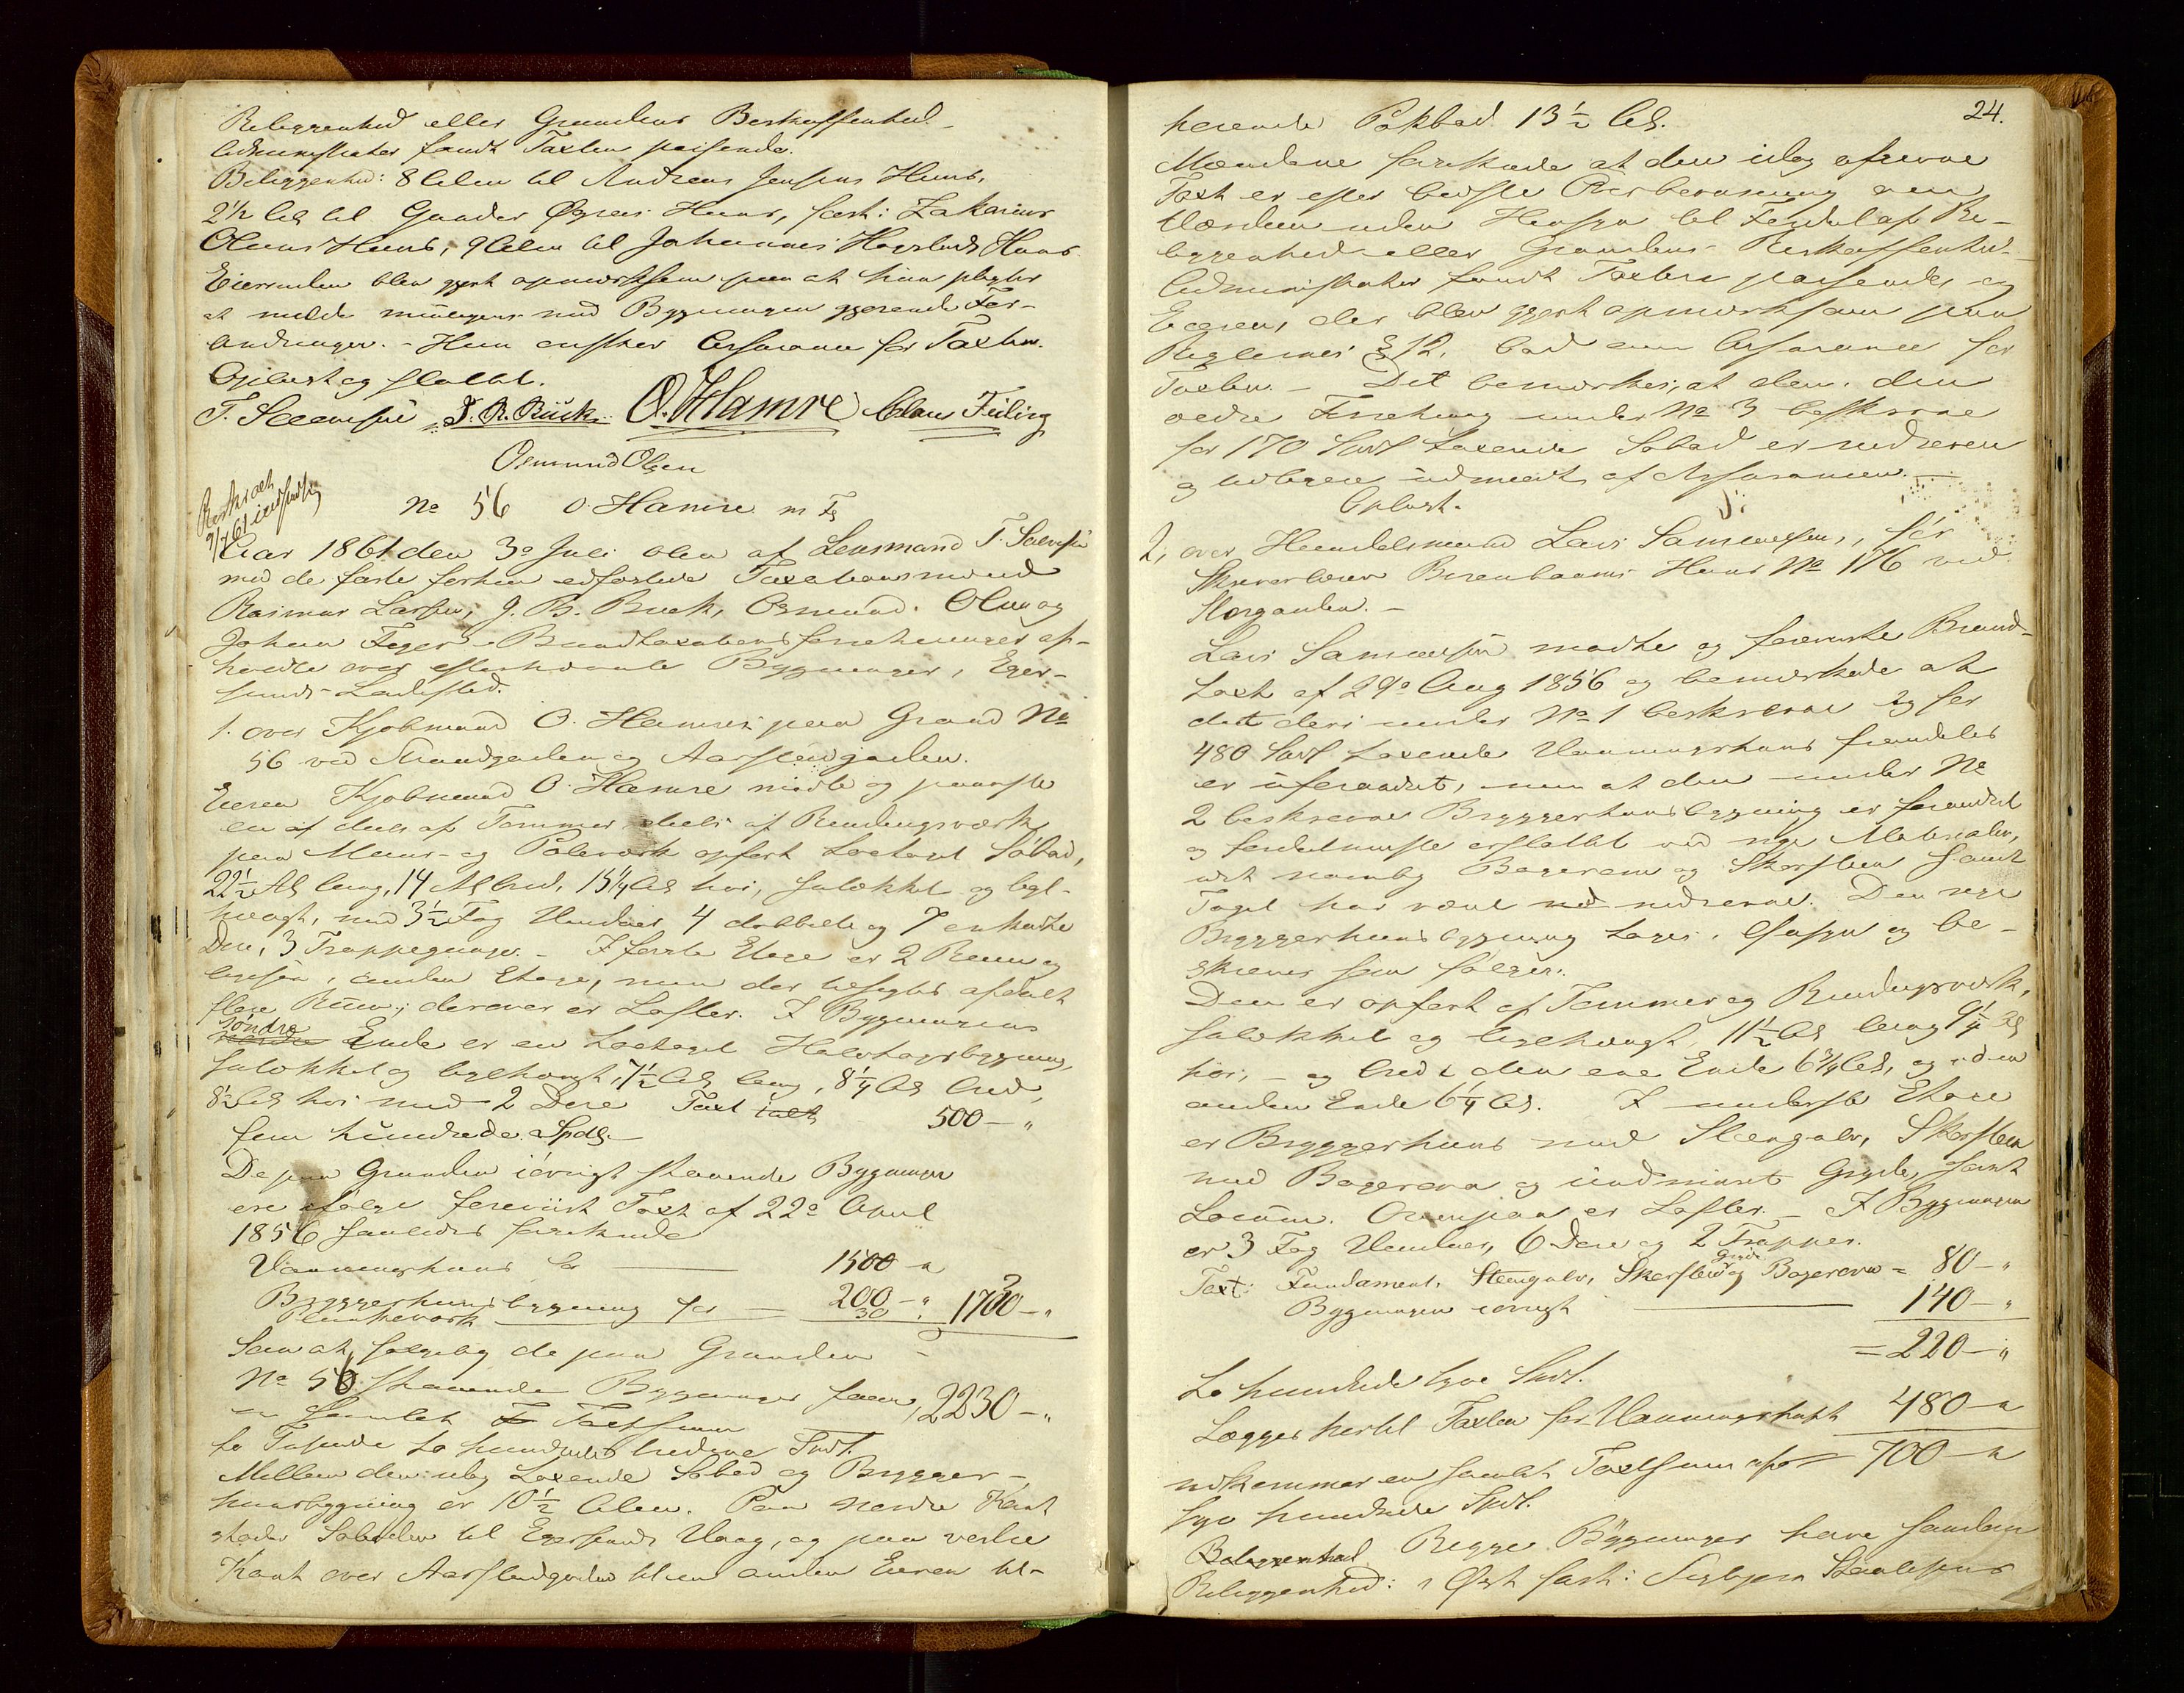 Beliggenhed eller Grundens Beskaffenhed.
Administrator fandt Taxten passende.
Beliggenhed: 8 Alen til Andreas Jensens Huus,
2½ Al til Gunder Huus, fast i Zakarias
Olsens Huus, 9 Alen til Johannes Huus
Eiersmden blev gjort opmærksom paa at hun pligter
at melde med Bygningen gjørende For-
andringer. - Hun ønsker Assurance for Taxten.
Oplæst og sluttet.
T. J. B. Buck. O. Hamre Claus Feiling
Osmund Olsen
Beskrevet
9/7 61
No 56 O. Hamre m Fl
Aar 1861 den 3e Juli blev af Lensmand T.
med de faste forhen edfæstede Taxationsmænd
Rasmus Larsen, J. B. Buck, Osmund Olsen og
Johan Feyer Brandtaxationsforretninger af-
holdte over efternævnte Bygninger i Eger-
sunds Ladested.
1. over Kjøbmand O. Hamres paa Grund No
56 ved Strandgaden og Aarstadgaden.
Eieren Kjøbmand O. Hamre mødte og paaviste
en af deels af Tømmer deels af Bindingsværk
paa Muur- og Pæleværk opført Søbod,
22½ Al lang, 14 Al bred, 15¼ Al høi, og tegl-
hængt, med 3½ Fag Vinduer 4 dobbelte og 7 enkelte
Døre, 3 Trappegange. - I første Etage er 2 Rum og
ligesaa i anden Etage, men der afdelt
flere Rum; derover er Lofter. I Bygningens
søndre
Ende er en Halvtagsbygning,
og teglhængt, 7½ Al lang, 8¼ Al bred,
8½ Al høi med 2 Døre Taxt 500 - "
fem hundrede Spdl.
De paa Grunden iøvrigt staaende Bygninger
ere ifølge foreviist Taxt af 22e April
1856 saaledes forsikrede
Vaaningshuus for 1500 "
Bryggerhuusbygning for 200 - "
Plankeværk 30 " 1730 - "
Saa at følgelig de paa Grunden
No 56 staaende Bygninger faaer 2230 - "
en samlet Taxtsum
to Tusende to hundrede tredive Spdl.
Mellem den idag taxerede Søbod og Brygger-
huusbygning er 10½ Alen. Paa nordre Kant
støder Søboden til Egersunds Vaag, og paa vestre
Kant over Aarstadgaden til en anden Eieren til-
24.
hørende Pakbod 13½ Al.
Mændene forsikrede at den idag afgivne
Taxt er efter bedste Overbevisning om
Værdien uden Hensyn til Fordel af Be-
liggenhed eller Grundens Beskaffenhed.
Administrator fandt Taxten passende, og
Eieren, der blev gjort opmærksom paa
Reglernes § 12, bad om Assurance for
Taxten. - Det bemærkes, at den i den
ældre Forretning under No 3 beskrevne
for 170 Spdl taxerede Søbod er nedreven
og udmeldt af Assurancen. -
Oplæst.
2, over Handelsmand Lars Samuelsens, før
Huus No 176 ved
Storgaden. -
Lars Samuelsen mødte og foreviste Brand-
taxt af 29e Aug 1856 og bemærkede at
det deri under No 1 beskrevne og for
480 Spdl taxerede Vaaningshuus fremdeles
er uforandret, men at den under No
2 beskrevne Bryggerhuusbygning er forandret
og fordetmeste erstattet ved nye Materialer,
idet navnlig Bagerovn og Skorsteen samt
Taget har været nedrevne. Den nye
Bryggerhuusbygning toges i Øiesyn og be-
skrives som følger:
Den er opført af Tømmer og Bindingsværk,
og teglhængt, 11½ Al lang 9¼ Al
høi, - og bred i den ene Ende 6¾ Al, og i den
anden Ende 6¼ Al. I underste Etage
er Bryggerhuus med Steengulv, Skorsteen
med Bagerovn og indmuret Gryde, samt
Locum. Ovenpaa er Lofter. - I Bygningen
er 3 Fag Vinduer, 6 Døre og 2 Trapper.
Gryde
Taxt: Fundament, Steengulv, Skorsteen og Bagerovn = 80 - "
Bygningen iøvrigt 140 - "
= 220 - "
to hundrede tyve Spdl.
Lægges hertil Taxten for Vaaningshuset 480 - "
udkommer en samlet Taxtsum af 700 - "
syv hundrede Spdl.
Beliggenhed Begge Bygninger have saadan
Beliggenhed: i Øst fast i